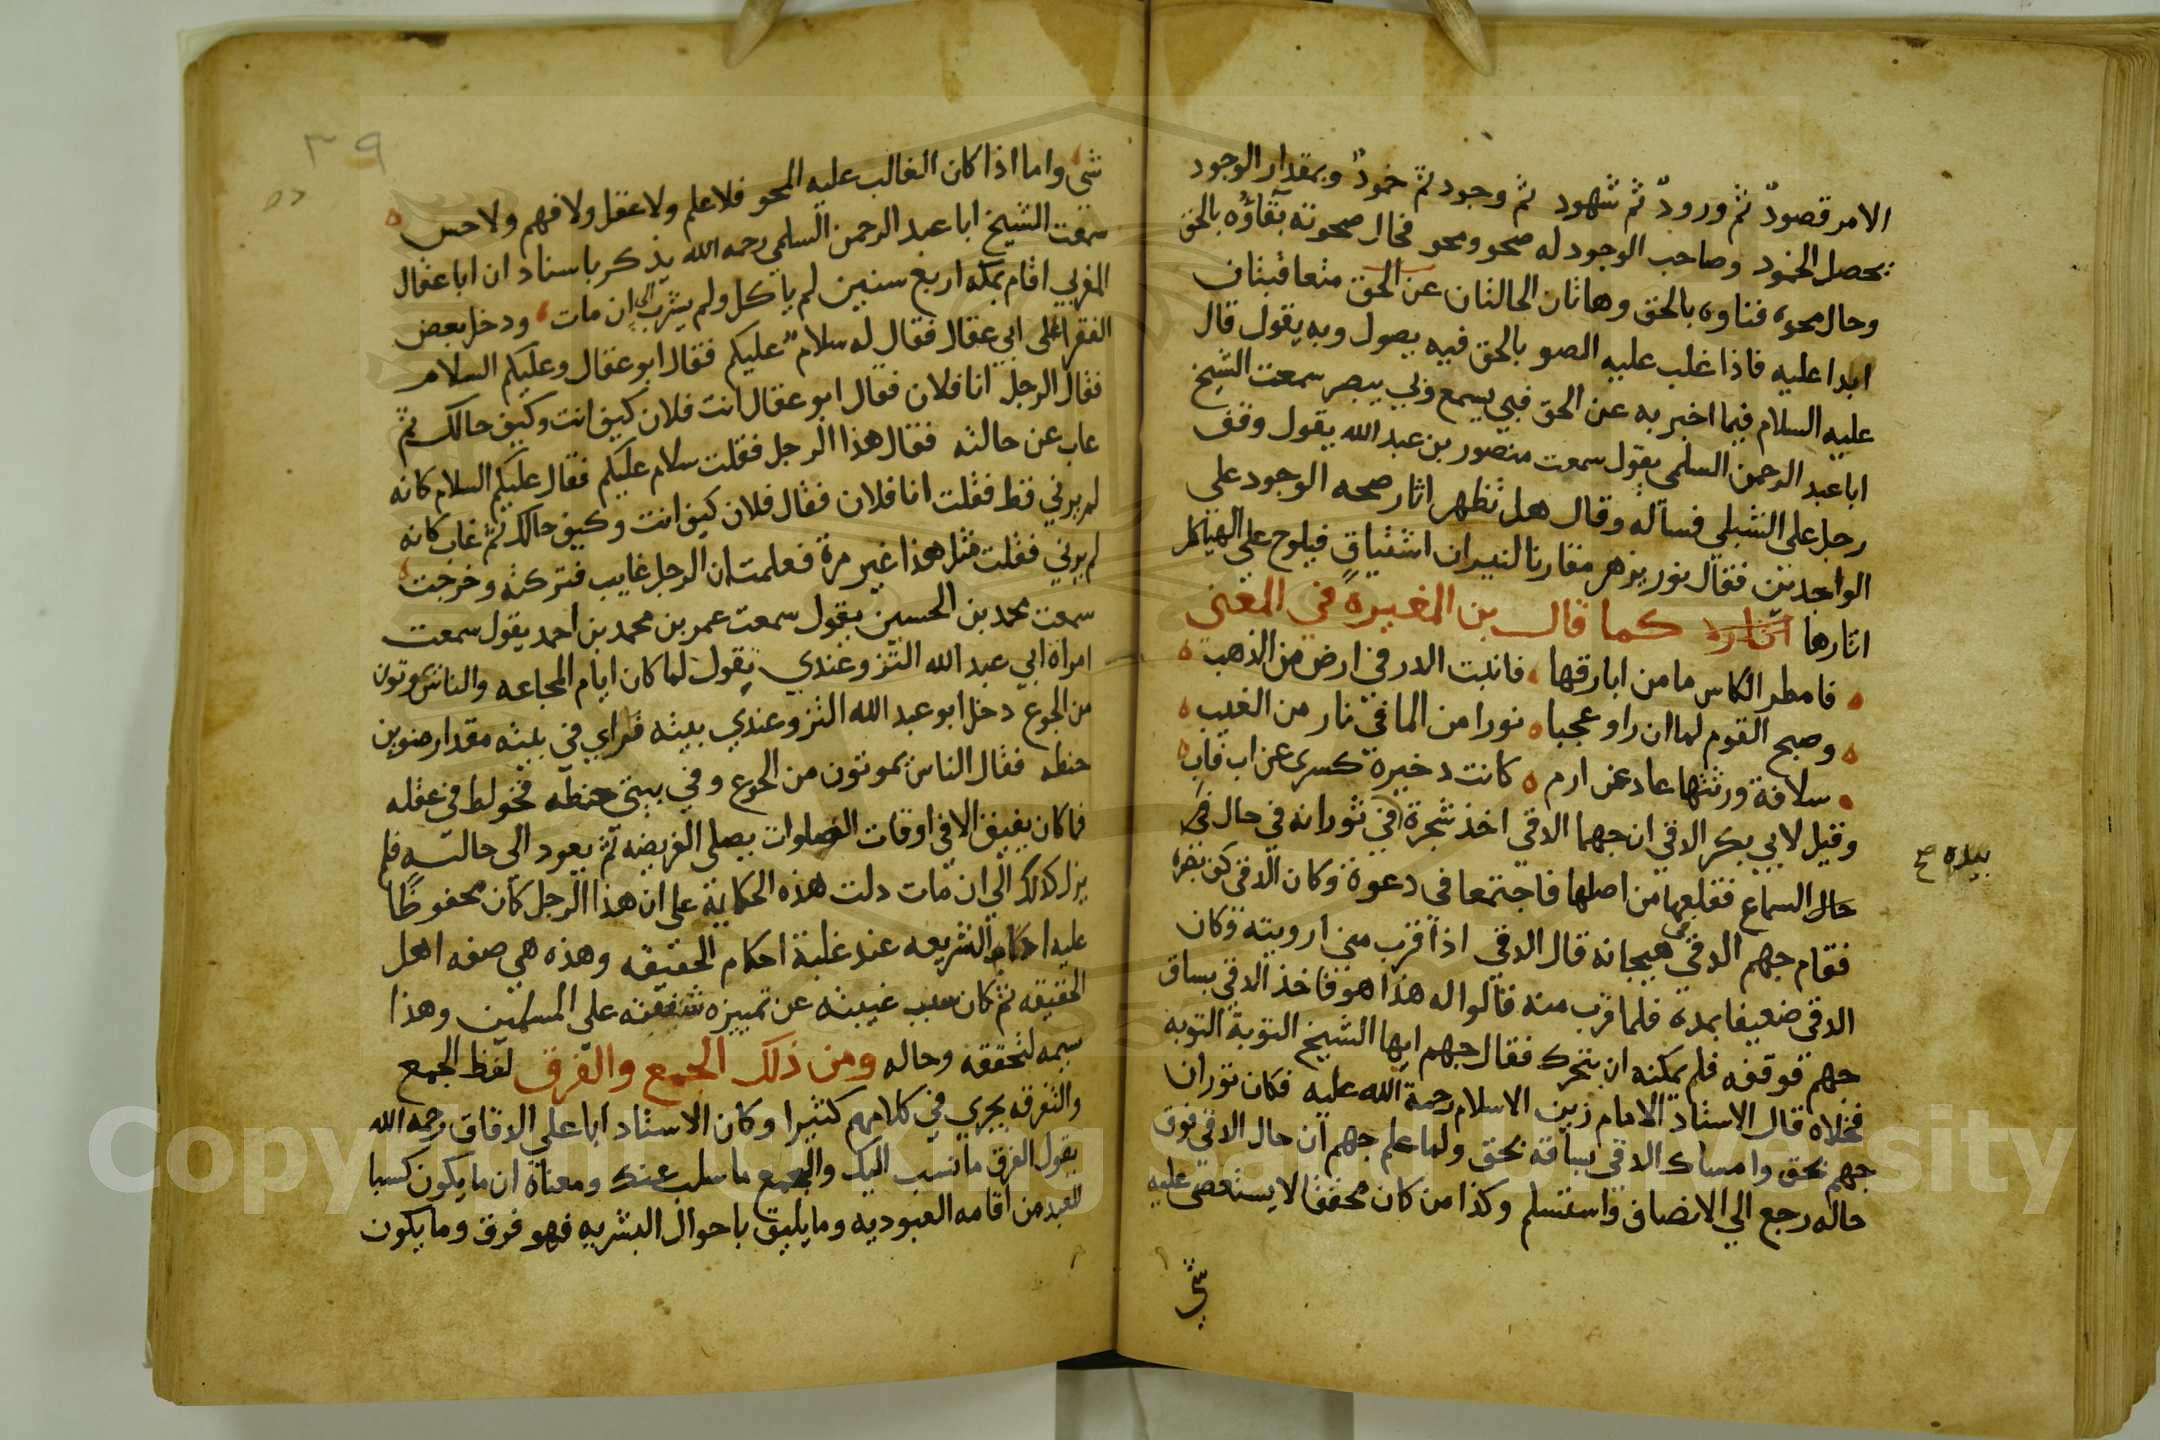 الامر قصودٌ ثم ورودٌ ثم شهود ثم وجود ثم خمودٌ وبمقدار الوجود
يحصل الخمود وصاحب الوجود له صحو ومحو فحال صحوته بقاؤه بالحق
وحال محوه فناوه بالحق وهاتان الحالتان عن الحق متعاقبتان
ابدا عليه فاذا غلب عليه الصو بالحق فيه يصول وبه يقول قال
عليه السلام فيما اخبر به عن الحق فبي يسمع وبي يبصر سمعت الشيخ
ابا عبد الرحمن السلمي يقول سمعت منصور بن عبد الله يقول وقف
رجل على الشبلي فسآله وقال هل تظهر اثار صحه الوجود على
الواجدين فقال نور يزهر مقارنا لنيران اشتياقٍ فيلوح على الهياكل
اثارها كما قال بن المغيرة في المعنى
فامطر الكاس ما من ابارقها فانبت الدر في ارض من الذهب
وصبح القوم لما ان راو عجبا نورا من الما في نار من العنب
سلافة ورثتها عاد عن ارم كانت ذخيرة كسرى عن اب فاب
وقيل لابي بكر الدقي ان جهما الدقي اخذ شجرة في ثورانه في حال في
حال السماع فقلعها من اصلها فاجتمعا في دعوة وكان الدقي كف بصره
بيده صح
فقام جهم الدقي في هيجانه قال الدقي اذا قرب مني ارونيه وكان
الدقي ضعيفا بمده فلما قرب منه قالوا له هذا هو فاخذ الدقي بساق
جهم فوقفه فلم يمكنه ان يتحرك فقال جهم ايها الشيخ التوبة التوبه
فخلاه قال الاستاد الامام زين الاسلام رحمة الله عليه فكان ثوران
جهم بحق وامساك الدقي بساقه بحق ولما علم جهم ان حال الدقي فوق
حاله رجع الي الانصاف واستسلم وكذا من كان محققا لا يستعصى عليه
شي
٣٩
شي واما اذا كان الغالب عليه المحو فلا علم ولا عقل ولا فهم ولا حس
سمعت الشيخ ابا عبد الرحمن السلمي رحمه الله يذكر باسناد ان ابا عقال
المغربي اقام بمكه اربع سنين لم ياكل ولم يشرب الى ان مات ودخل بعض
الفقرا على ابي عقال فقال له سلامٌ عليكم فقال ابو عقال وعليكم السلام
فقال الرجل انا فلان فقال ابو عقال انت فلان كيف انت وكيف حالك ثم
غاب عن حالته فقال هذا الرجل فقلت سلام عليكم فقال عليكم السلام كانه
لم يرني قط فقلت انا فلان فقال فلان كيف انت وكيف حالك ثم غاب كانه
لم يرني فقلت مثل هذا غير مرة فعلمت ان الرجل غايب فتركته وخرجت
سمعت محمد بن الحسين يقول سمعت عمر بن محمد بن احمد يقول سمعت
امراة ابي عبد الله التزوغندي تقول لما كان ايام المجاعه والناس يموتون
من الجوع دخل ابو عبد الله التزوغندي بيته فراي في بيته مقدار منوين
حنطه فقال الناس يموتون من الجوع وفي بيتي حنطه فخولط في عقله
فما كان يفيق الا في اوقات الصلوات يصلى الفريضه ثم يعود الى حالته فلم
يزل كذلك الى ان مات دلت هذه الحكاية على ان هذا الرجل كان محفوظًا
عليه احكام الشريعه عند غلبة احكام الحقيقه وهذه هي صفه اهل
الحقيقه ثم كان سبب غيبته عن تمييزه شفقته على المسلمين وهذا
سمه لتحققه وحاله ومن ذلك الجمع والفرق لفظ الجمع
والتفرقه يجري في كلامهم كثيرا وكان الاستاد ابا علي الدقاق رحمه الله
يقول الفرق ما نسب اليك والجمع ما سلب عنك ومعناه ان ما يكون كسبا
للعبد من اقامه العبوديه وما يليق باحوال البشريه فهو فرق وما يكون
Copyright © King Saud University